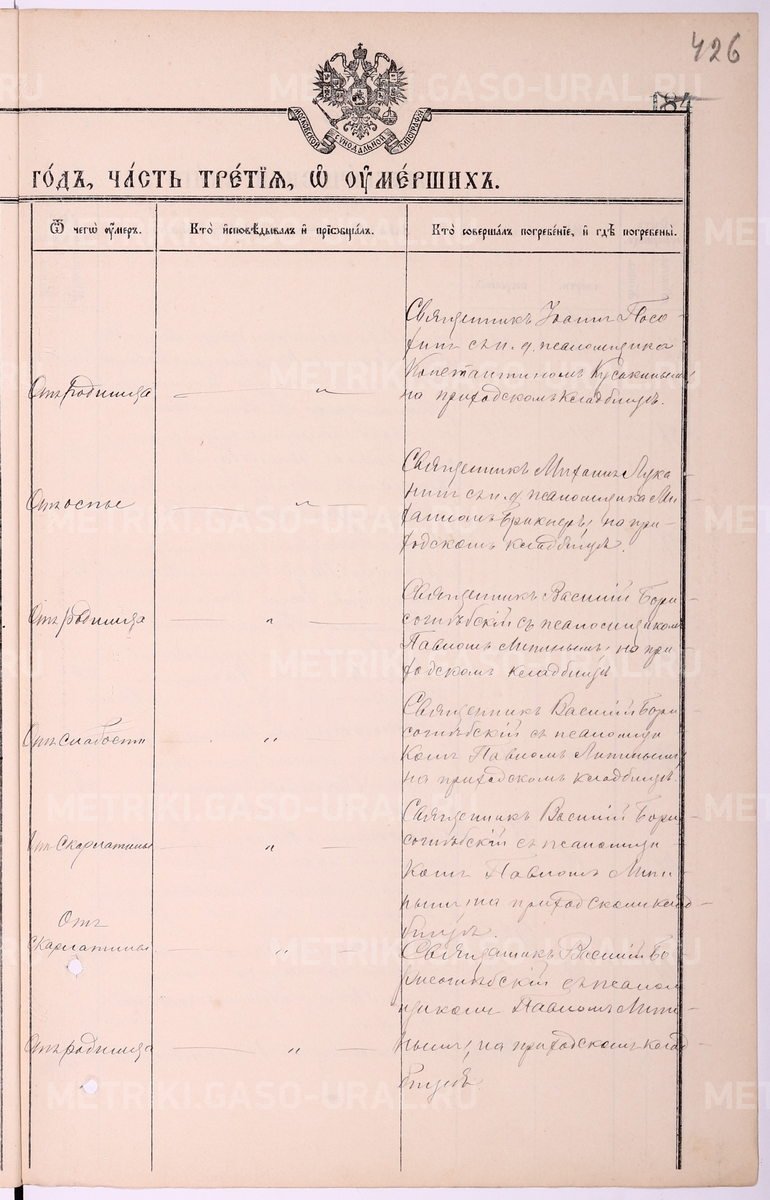 426
184
МОСКОВСКОЙ СѴНОДАЛЬНОЙ ТИПОГРАФІИ
ГО́ДЪ, ЧА́СТЬ ТРЕ́ТІЯ, Ѿ ОУМЕ́РШИХЪ.
Ѿ чегѡ̀ ᲂу҆́меръ.
Кто̀ и҆сповѣ́дывалъ и҆ прїѻбща́лъ.
Кто̀ соверша́лъ погребе́нїе, и҆ гдѣ̀ погребены̀.
Отъ родимца
"
Священникъ Іоаннъ
съ и. д. псаломщика
Константиномъ
на приходскомъ кладбищѣ.
Отъ оспы
"
Священникъ Михаилъ Лука-
нинъ съ и. д. псаломщика Ми-
хаиломъ на при-
ходскомъ кладбищѣ.
Отъ родимца
"
Священникъ Василій Бори-
соглѣбскій съ псаломщикомъ
Павломъ на при-
ходскомъ кладбищѣ
Отъ слабости
"
Священникъ Василій Бори-
соглѣбскій съ псаломщи-
комъ Павломъ
на приходскомъ кладбищѣ.
Отъ скарлатины
"
Священникъ Василій Бори-
соглѣбскій съ псаломщи-
комъ Павломъ
на приходскомъ клад-
бищѣ.
Отъ
скарлатины
"
Священникъ Василій Бо-
рисоглѣбскій съ псалом-
щикомъ Павломъ
Отъ родимца
"
на приходскомъ клад-
бищѣ
METRIKI.GASO-URAL.RU